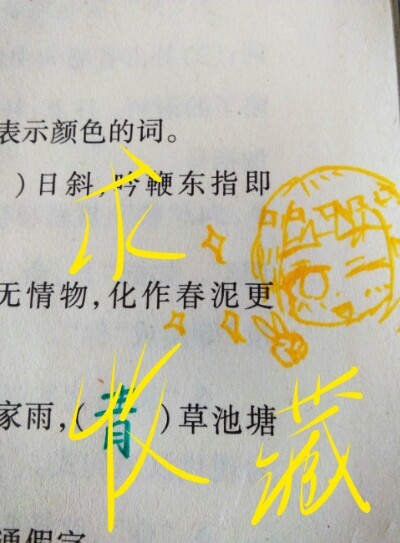 表示颜色的词。
)日斜,吟鞭东指即
求
无情物,化作春泥更
家雨,(青)草池塘
收藏
通假字